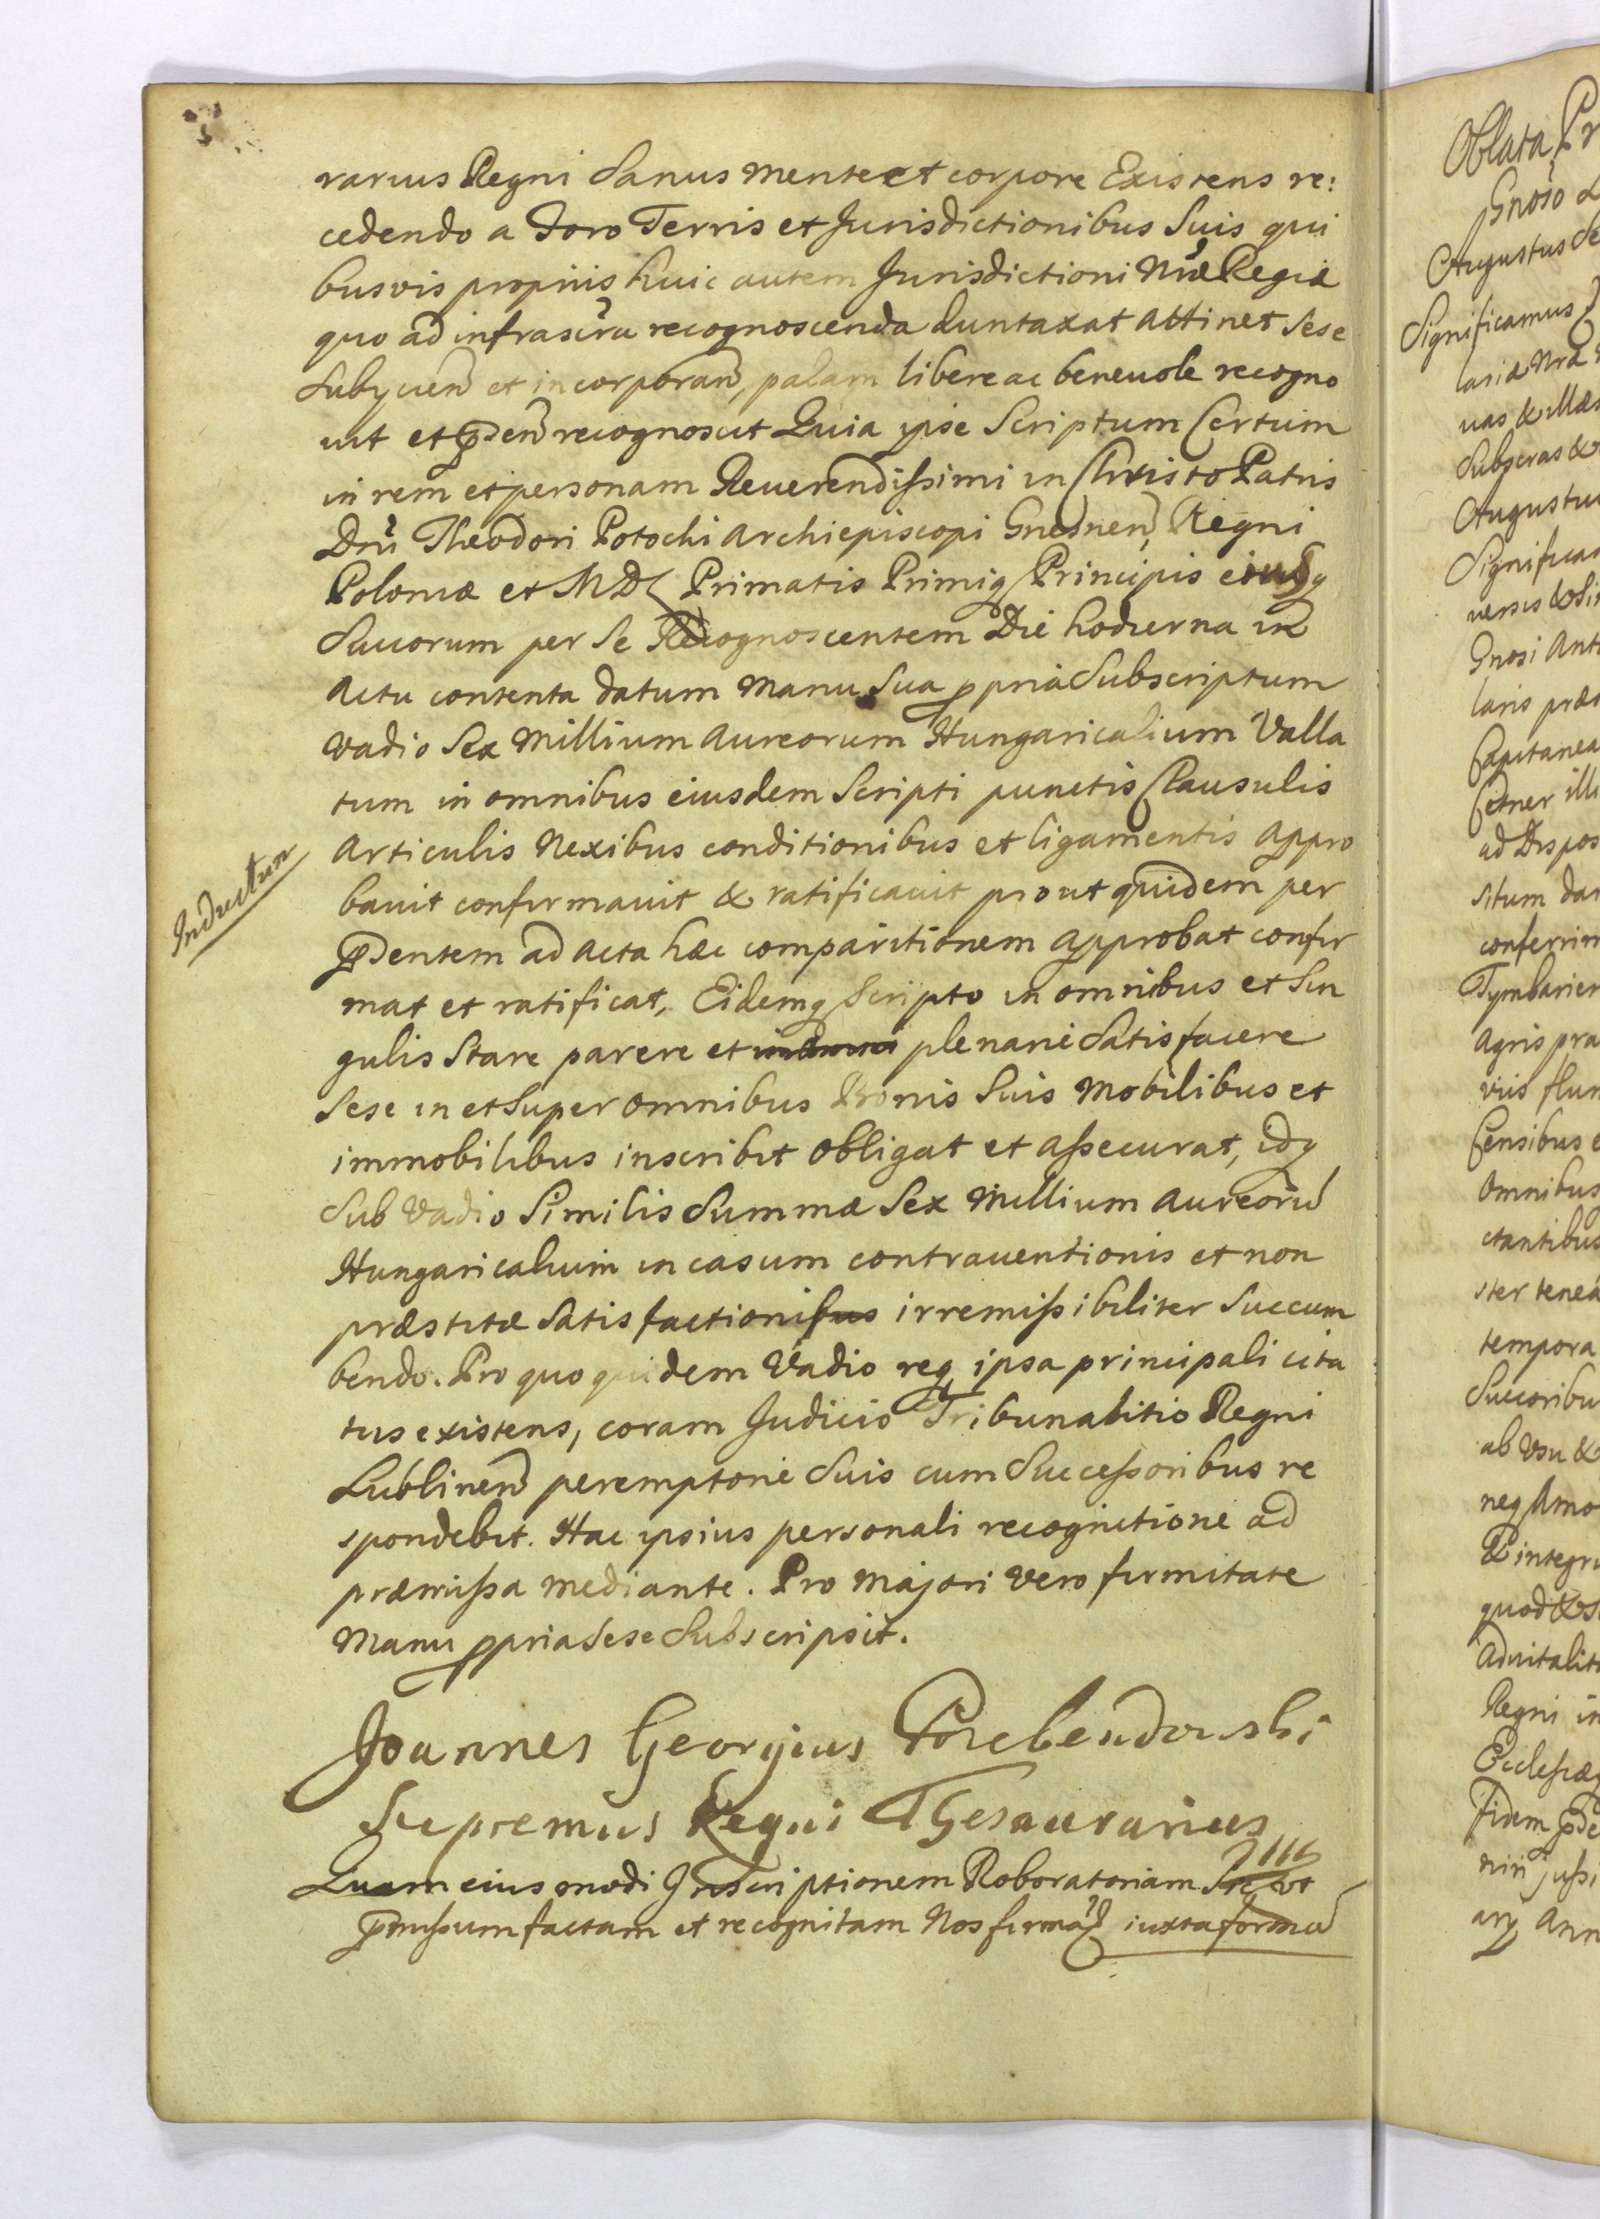 rarius Regni Sanus mente et corpore Existens re:
cedendo a Foro Terris et Jurisdictionibus Suis qui
busvis proprijs huic autem Jurisdictioni Nræ Regiæ
quo ad infrascra recognoscenda duntaxat attinet sese
Subycien et incorporan, palam libere ac beneuole recogno
uit et pñsen recognoscit Quia ipse Scriptum Certum
in rem et personam Reuerendissimi in Christo Patris
Dni Theodori Potocki Archiepiscopi Gnesnen, Regni
Poloniæ et MDL Primatis Primiq Principis eiusq
Suuorum per se Recognoscentem Die hodierna in
Actu contenta datum manu sua ppria Subscriptum
vadio Sex Millium Aureorum Hungaricalium Valla
tum in omnibus eiusdem Scripti punctis Clausulis
Articulis Nexibus conditionibus et ligamentis appro
bauit confirmauit & ratificauit prout quidem per
pñsentem ad acta hæc comparitionem approbat confir
mat et ratificat, Eidemq Scripto in omnibus et sin
gulis Stare parere et plenarie Satisfacere
Sese in et Super omnibus Bonis Suis Mobilibus et
immobilibus inscribit obligat et assecurat, idq
Sub Vadio Similis Summæ Sex Millium Aureoru
Hungaricalium in casum contrauentionis et non
præstitæ Satisfactionis irremissibiliter Succum
bendo. Pro quo quidem Vadio req ipsa principali cita
tus existens, coram Judicio Tribunalitio Regni
Lublinen peremptorie Suis cum Successoribus re
spondebit. Hac ipsius personali recognitione ad
præmissa mediante. Pro Majori vero firmitate
Manu ppria Sese Subscripsit.
Inductum
Joannes Georgius Przebendowski
Supremus Regni Thesaurarius
Quam eiusmodi Inscriptionem Roboratoriam Sic ut
præmissum factam et recognitam Nos firma iuxta forma
Oblata Pr
Augustus Se
Significamus
lariæ Nræ
uas & illæs
Subscras &
Augustu
Significa
uersis & Si
Gnosi Ant
laris præs
Capitanea
Cetner ill
ad Dispos
situm da
conferrim
Tymbarier
Agris pra
viis flum
Censibus e
Omnibus
ctantibus
ster teneá
tempora
Succoribu
ab Vsu &
neq Amo
& integru
quod & s
Aduitalit
Regni in
Ecclesiæ
fidem pñse
niri jussi
arq Ann